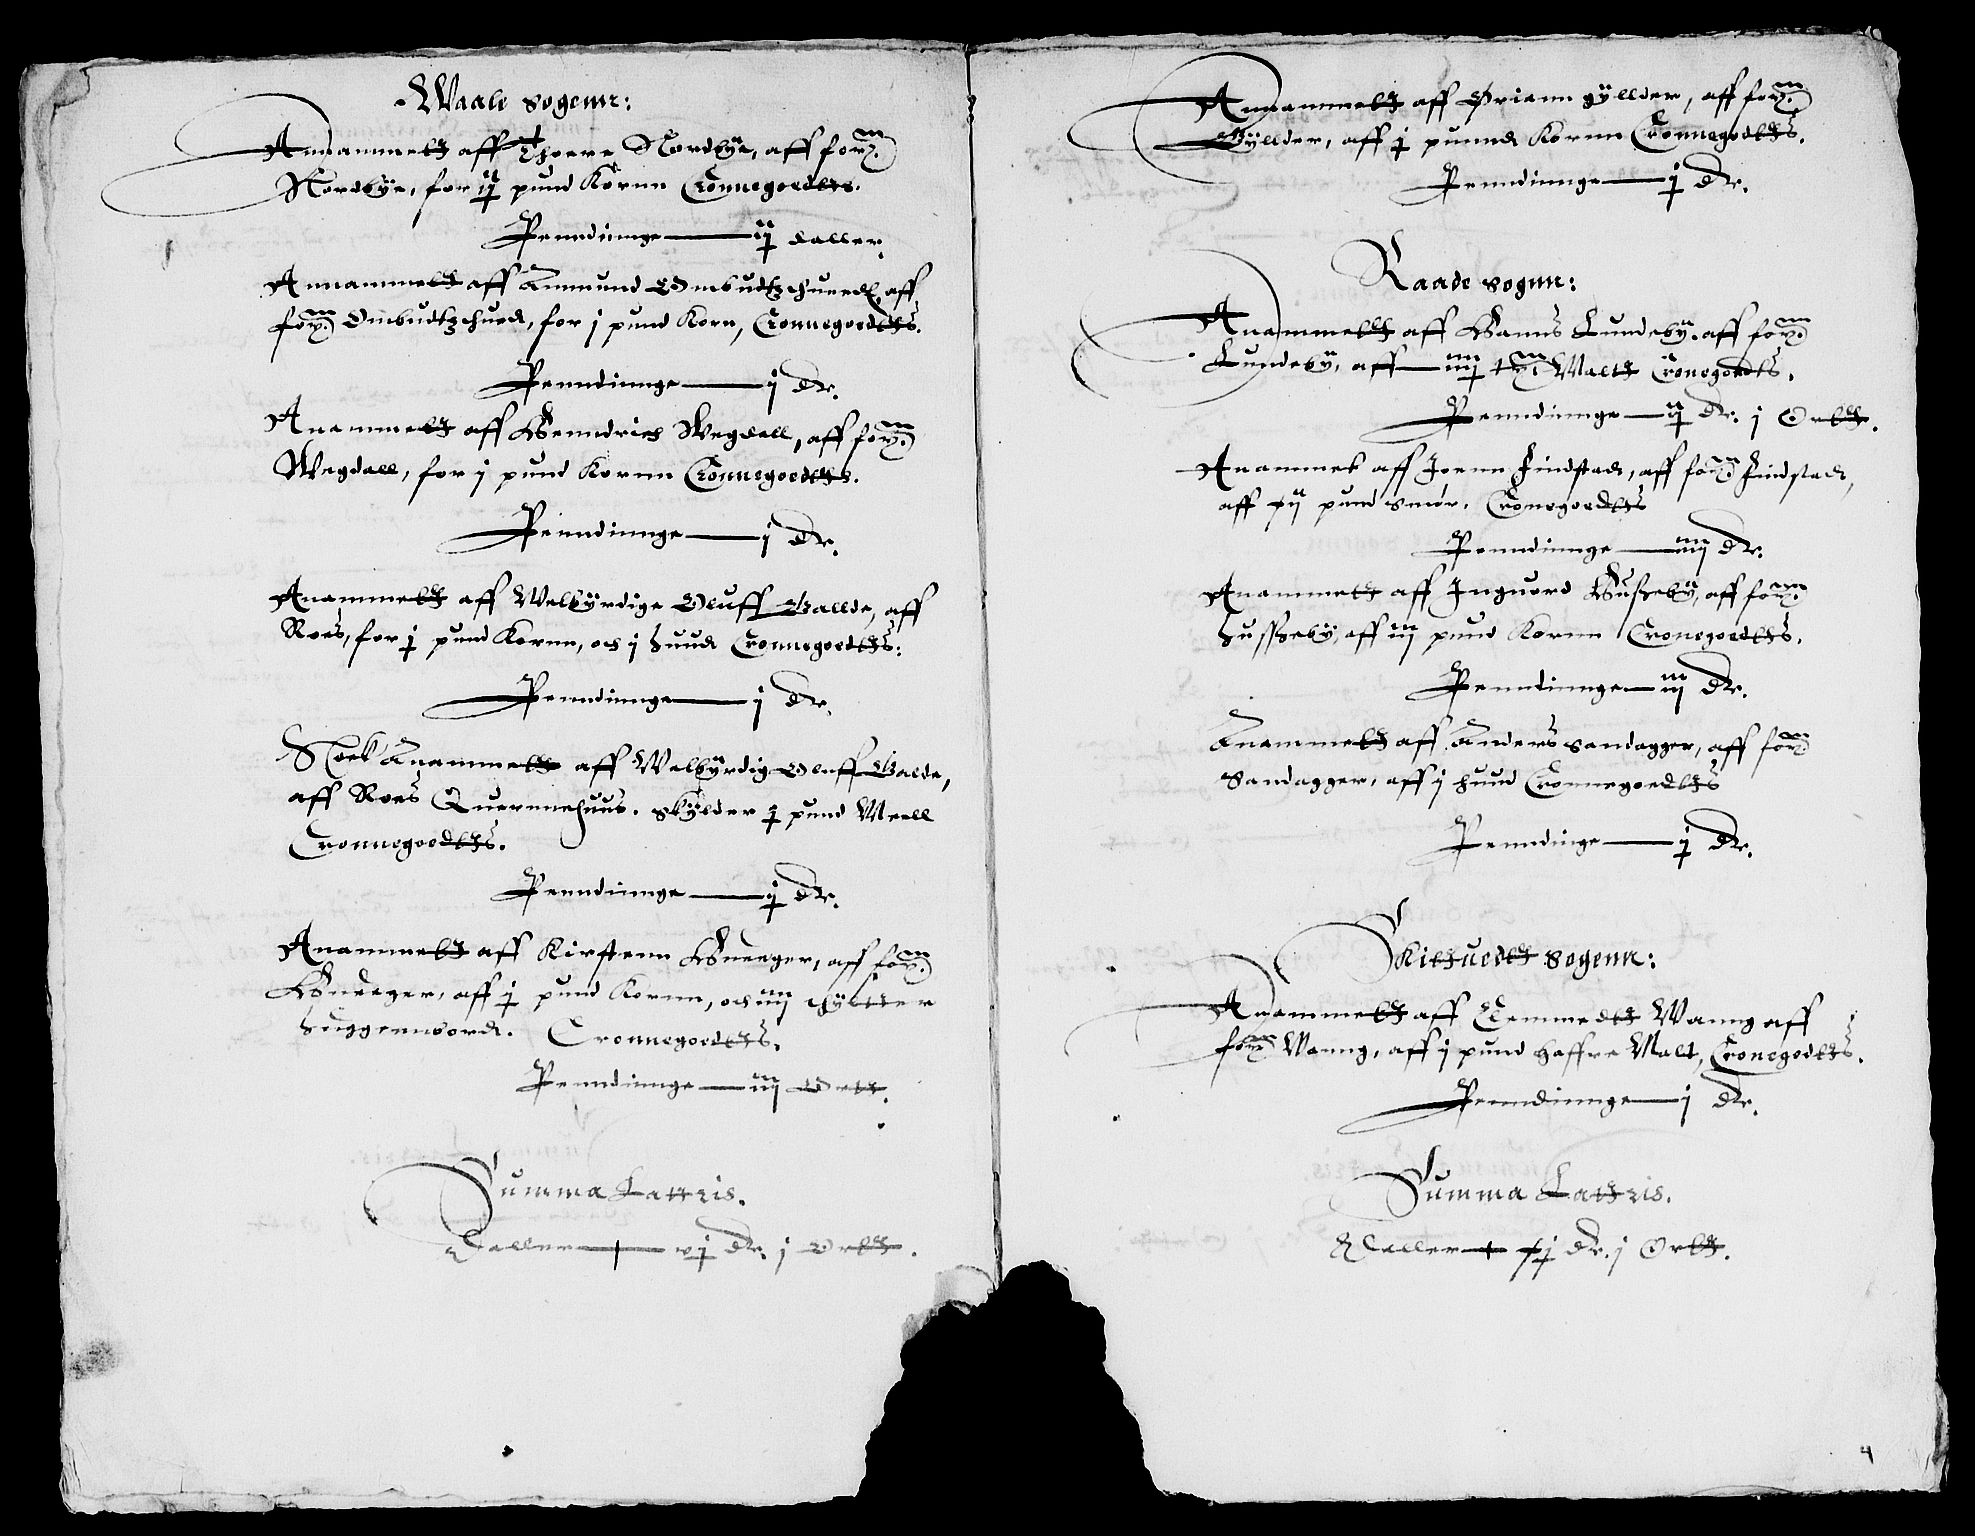 Waale sogenn:
Annammett aff Thoere Nordbÿe, aff for:ne
Nordbÿe, for ij pund Kornn Cronnegoedtts.
Penndinnge — ij daller.
Annammett aff Ammund Ombudtzhuedt, aff
for:ne Ombudtzhued, for j pund Korn, Cronnegoedtts.
Penndinnge — j dr.
Anammett aff Henndrich Wegdall, aff for:ne
Wegdall, for j pund Kornn Cronnegoedtts.
Penndinnge — j dr.
Anammett aff Welbÿrdige Oluff Gallde, aff
Roes, for j pund Kornn, och j huud Cronnegoedtts:
Penndinnge — j dr.
Noek Anammett aff Welbÿrdig Oluff Galde,
aff Roes Quernnehuus. skÿlder j pund Meell
Cronnegoedtts.
Penndinnge — j dr.
Anammett aff Kirstenn Hueeger, aff for:ne
Hueeger, aff j pund Kornn, och iiij
Cronnegoedtts.
Penndinnge — iij Ortt.
Summa Latteris.
Daller — vj dr. j Ortt.
Annammett aff Øriann gÿllder, aff for:ne
Gÿllder, aff j punnd Kornn Cronnegoedtts.
Penndinnge — j dr.
Raade sognn:
Anammett aff Hanns Lundebÿ, aff for:ne
Lundebÿ, aff — iiij Maltt Cronegoedts.
Penndinnge — ij dr. j Ortt.
Anammet aff Joenn Findstad, aff for:ne Findstad,
aff pund smør. Cronegoedtts
Penndinnge — iiij dr.
Anammett aff Inguord Hussebÿ, aff for:ne
Hussebÿ, aff iij pund Kornn Cronegoedtts.
Penndinnge — iij dr.
Anammett aff Anders sandagger, aff for:ne
Sandagger, aff j huud Cronnegoedtts
Penndinge — j dr.
Skittuedtt sogenn:
Anammett aff Clemmedtt Wanng aff
for:ne Wanng, aff j pund haffre Malt, Cronegodtts.
Penndinnge — j dr.
Summa Latteris.
Daller — xj dr. j Ortt.
4